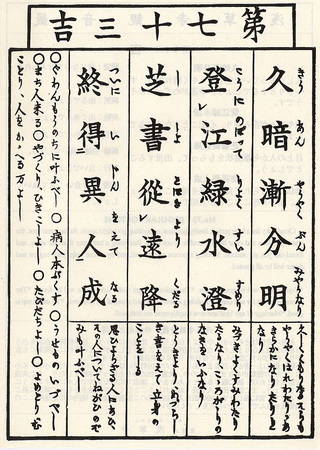 第七十三吉
久暗漸分明
きう あん やうやく ぶん みやうなり
久しくくもるそらも
やうやくはれわたりあ
きらかになりたりと
なり
登レ江緑水澄
こうにのぼつて りよく すい すめり
みづきよくすみわたり
たるなり、こころがゝりの
なきをいふなり
芝書從レ遠降
しー しよ とほきより くだる
とうきより、めづらし
き書をえて立身の
ことをしる
終得二異人一成
ついに い じん をえて なる
思ひよらざる人にあひ、
その人についてねがひのぞ
みも叶ふべし
○ぐわんもうのちに叶ふべし ○病人本ぶくす ○うせものいづべし
○まち人来る○やづくり、ひきこしよし ○たびだちよし ○よめとりむ
ことり、人をかゝへる万よし